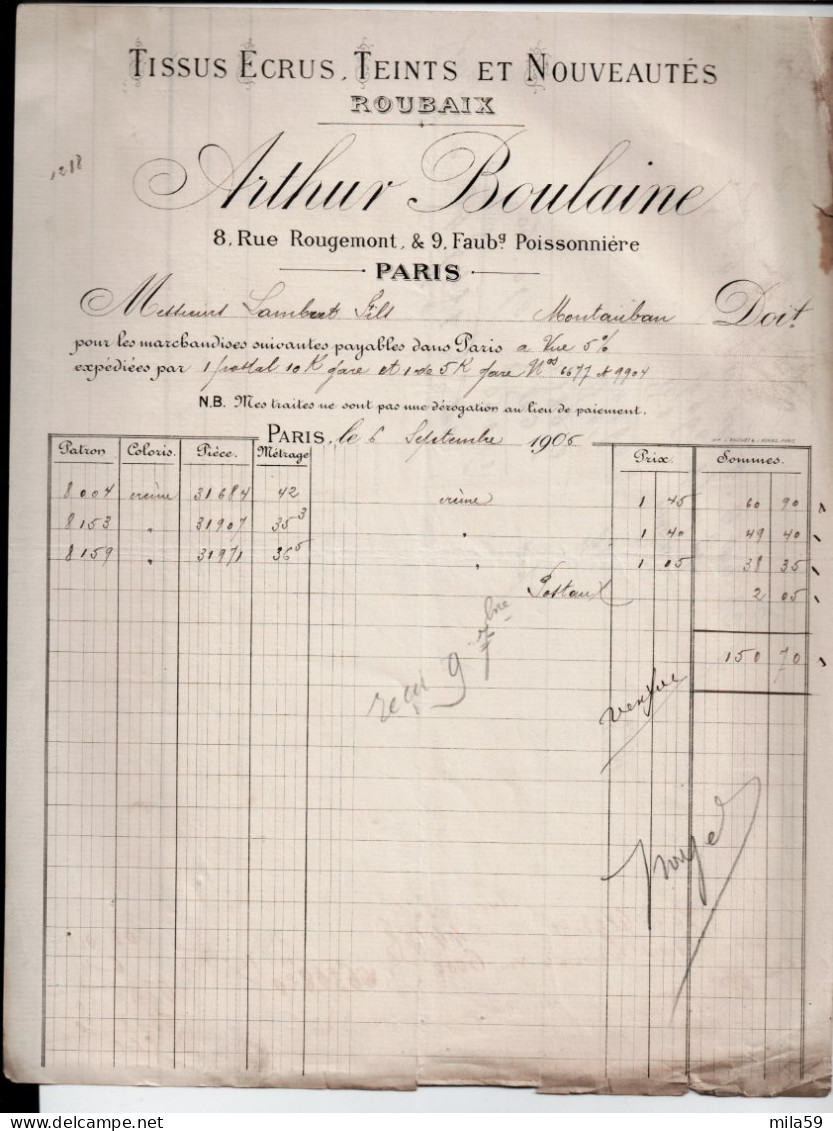 TISSUS ECRUS, TEINTS ET NOUVEAUTÉS
ROUBAIX
1218
Arthur Boulaine
8, Rue Rougemont, & 9, Faubg Poissonnière
PARIS
Messieurs Lambert Fils Montauban Doit
pour les marchandises suivantes payables dans Paris a vue 5%
expédiées par 1 postal 10 K gare et 1 de 5 K gare Nos 6677 & 9904
N.B. Mes traites ne sont pas une dérogation au lieu de paiement.
PARIS, le 6 Septembre 1906
Patron Coloris. Pièce. Métrage Prix. Sommes.
8004 crème 31684 42 crème 1 45 60 90
8153 " 31907 35 3 " 1 40 49 40
8159 " 31971 36 5 " 1 05 38 35
Postaux 2 05
150 70
reçu 9 7bre
payé
mila59